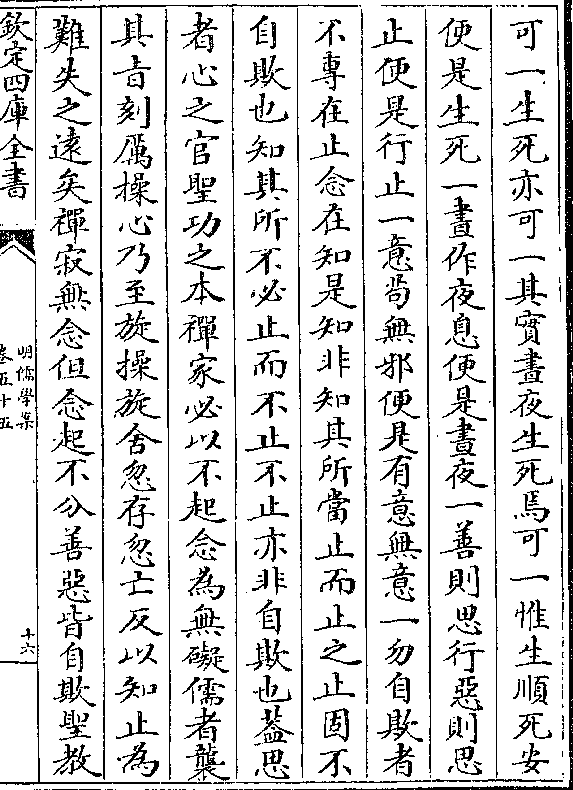 可一生死亦可一其實晝夜生死焉可一惟生順死安
便是生死一晝作夜息便是晝夜一善則思行惡則思
止便是行止一意茍無邪便是有意無意一勿自欺者
不專在止念在知是知非知其所當止而止之止固不
自欺也知其所不必止而不止不止亦非自欺也葢思
者心之官聖功之本禪家必以不起念為無礙儒者襲
其㫖刻厲操心乃至旋操旋舍忽存忽亡反以知止為
難失之遠矣禪寂無念但念起不分善惡皆自欺聖教
欽定四庫全書
明儒學案
卷五十五
十六